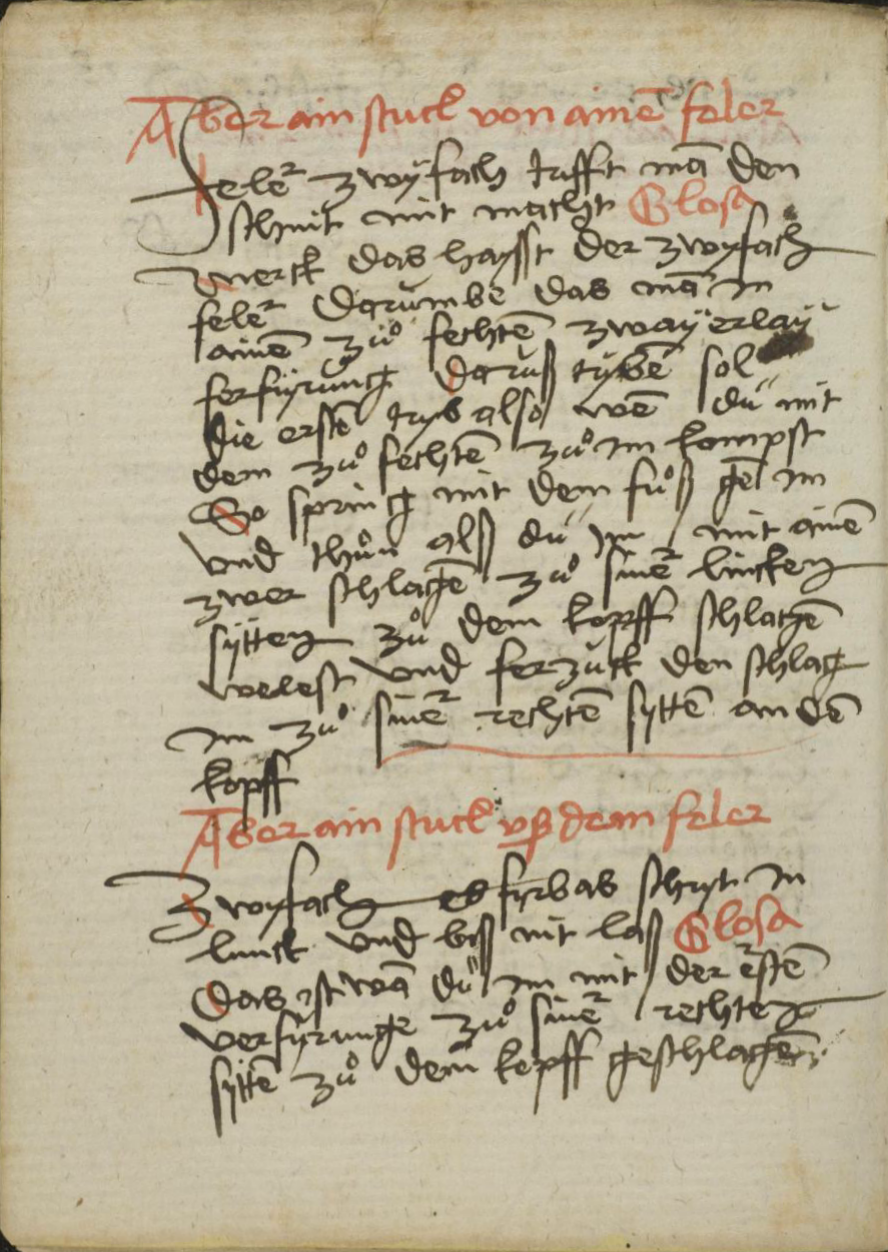 Aber ain stuck von ainē feler
Feler zwÿfach trifft mā den
schnit mit macht Glosa
merck das haysst der zwyfach
feler darumbe das mā in
ainē zů fechtē zwaÿerlaÿ
ferfÿrung daruß trybē sol
die erstē tryb also wē du mit
dem zů fechtē zů im kompst
So spring mit dem fůß gē im
vnd thůn alß du im mit ainē
zwer schlagē zů siner lincken
sÿtten zů dem kopff schlagē
welest vnd ferzuck den schlag
im zů siner rechtē sÿttē an dē
kopff
Aber ain stuck vß dem feler
Zwyfach es fyrbas schryt in
linck vnd biß nit laß Glosa
Das ist wā du im mit der erstē
verfÿrunge zů siner rechten
sÿttē zů dem kopff geschlagē